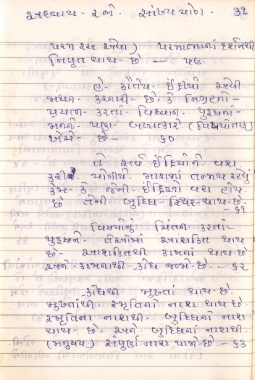 અધ્યાય - ૨ જો  સાંખ્ય યોગ  ૩૨
પરમ રસ એવા) પરમાત્માનાં દર્શનથી
નિવૃત થાય છે — ૫૯
હે કૌંતેય ઈંદ્રિયો એવી
કરનારી છે. કે નિગ્રહના
પ્રયત્ન કરતાં વિદ્વાન પુરુષના
મનને પણ બળાત્કારે (વિષયોમાં)
ખેંચે છે — ૬૦
તે સર્વ ઈંદ્રિયોને વશ
કરી યોગીએ મારામાં તન્મય રહેવું
કેમ કે જેની ઈંદ્રિયો વશ હોય
છે તેની બુદ્ધિ સ્થિર થાય છે.
— ૬૧
વિષયોનું ચિંતન કરતાં
પુરુષને તેઓમાં આસક્તિ થાય
છે આસક્તિથી કામના થાય છે
અને કામનાથી ક્રોધ જન્મે છે — ૬૨
ક્રોધથી મૂઢતા થાય છે.
મૂઢતાથી સ્મૃતિનો નાશ થાય છે
સ્મૃતિના નાશથી બુદ્ધિનો નાશ
થાય છે. અને બુદ્ધિના નાશથી
(મનુષ્ય) સંપૂર્ણ નાશ પામે છે — ૬૩